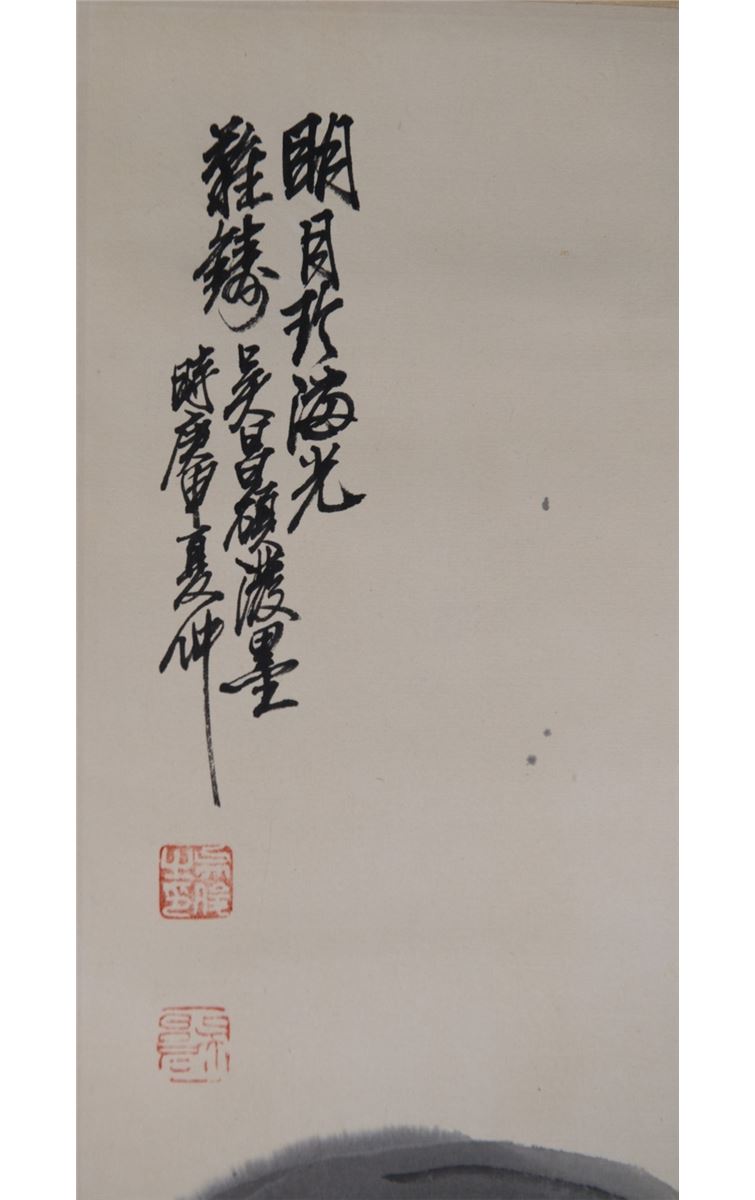 明月珍滿光
難鑄
吳昌碩潑墨
時庚申夏仲
吳俊之印